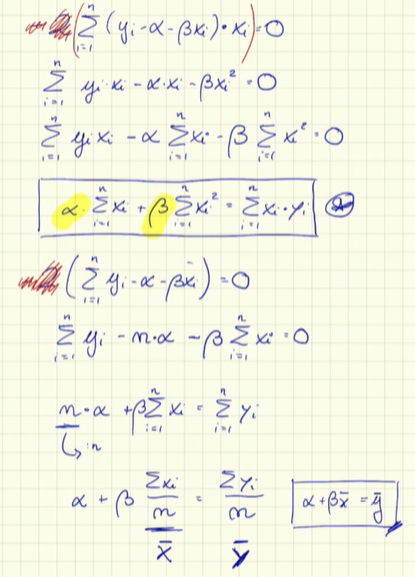 (∑_{i=1}^{n} (yi - α - βxi)·xi) = 0
∑_{i=1}^{n} yi·xi - α·xi - βxi² = 0
∑_{i=1}^{n} yixi - α ∑_{i=1}^{n} xi - β ∑_{i=1}^{n} xi² = 0
α·∑_{i=1}^{n} xi + β ∑_{i=1}^{n} xi² = ∑_{i=1}^{n} xi·yi
(∑_{i=1}^{n} yi - α - βxi) = 0
∑_{i=1}^{n} yi - n·α - β ∑_{i=1}^{n} xi = 0
n·α + β ∑_{i=1}^{n} xi = ∑_{i=1}^{n} yi
↳ :n
α + β ∑xi/n = ∑yi/n α + βx̄ = ȳ
x̄ ȳ